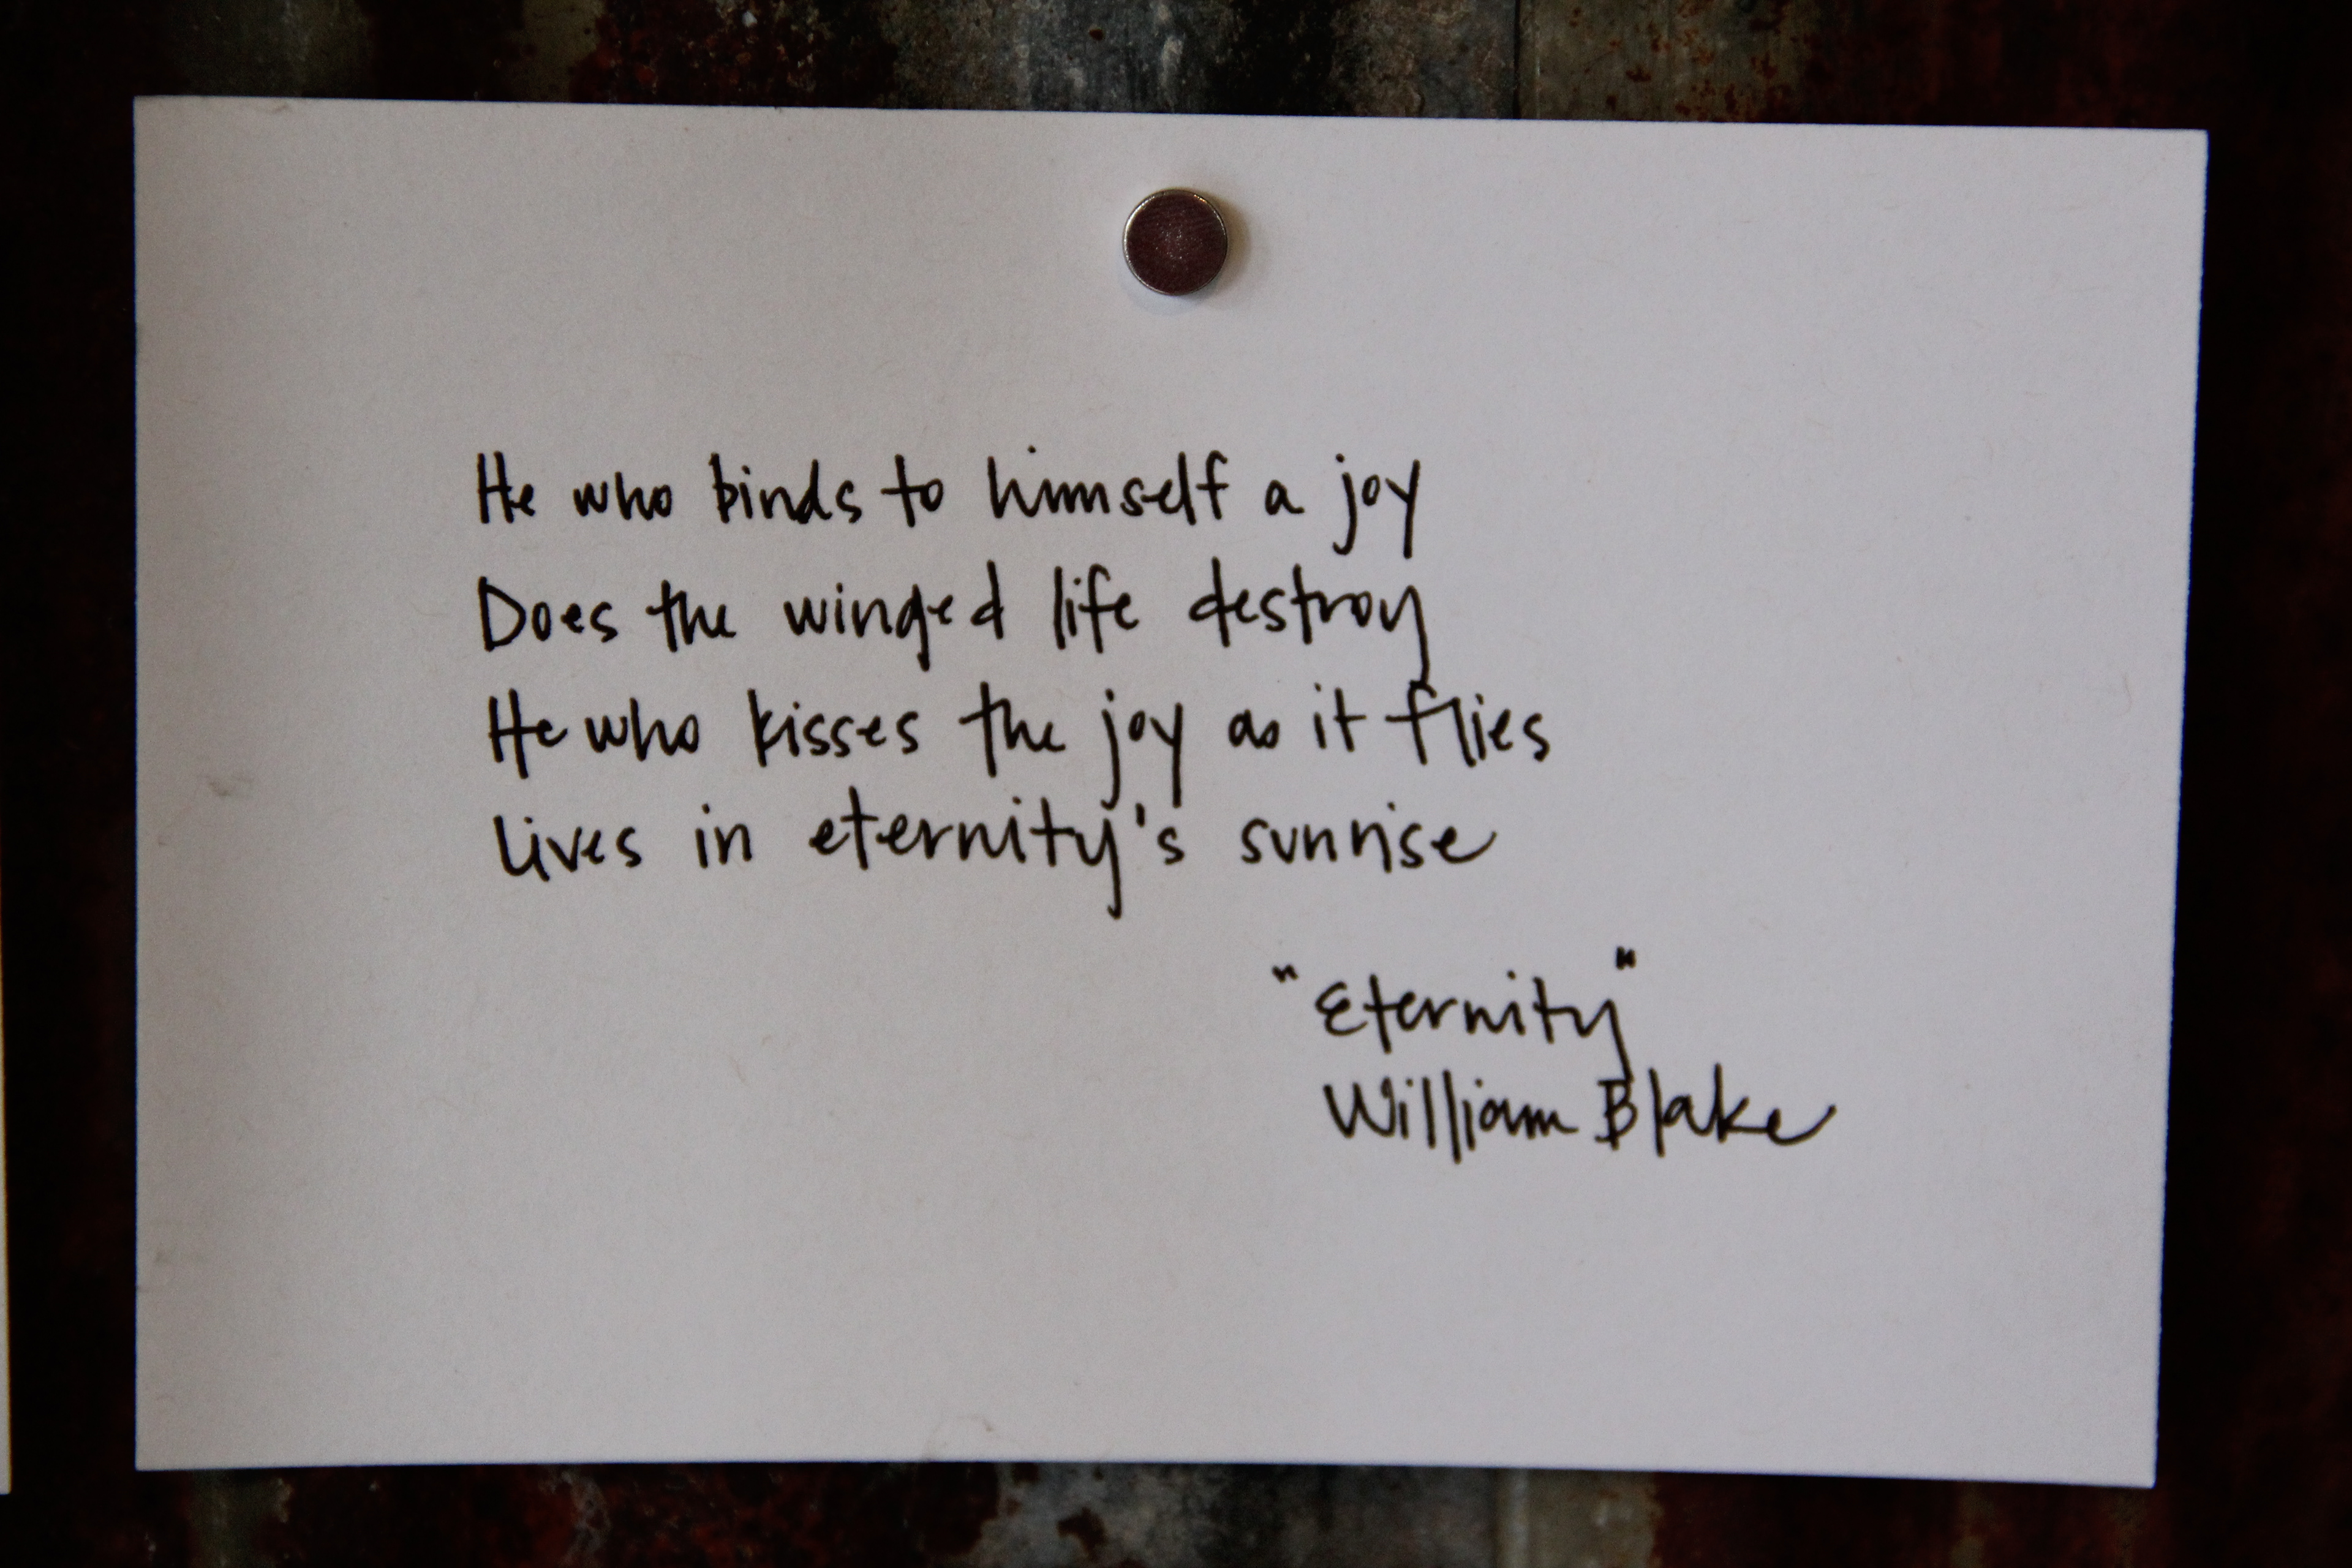 He who binds to himself a joy
Does the winged life destroy
He who kisses the joy as it flies
Lives in eternity's sunrise
"Eternity"
William Blake